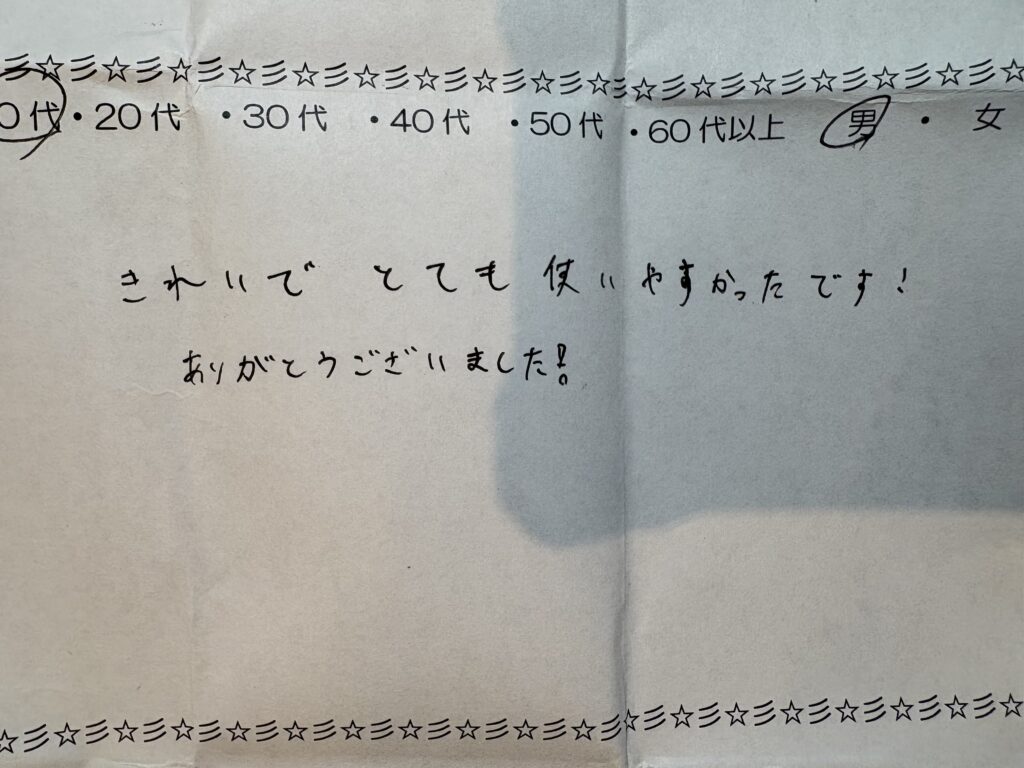 彡☆彡☆彡☆彡☆彡☆彡☆彡☆彡☆彡☆彡☆彡☆彡☆彡☆彡☆彡☆彡☆
0代・20代・30代・40代・50代・60代以上 男・女
きれいで とても 使いやすかったです!
ありがとうございました!!
☆彡☆彡☆彡☆彡☆彡☆彡☆彡☆彡☆彡☆彡☆彡☆彡☆彡☆彡☆彡☆彡☆